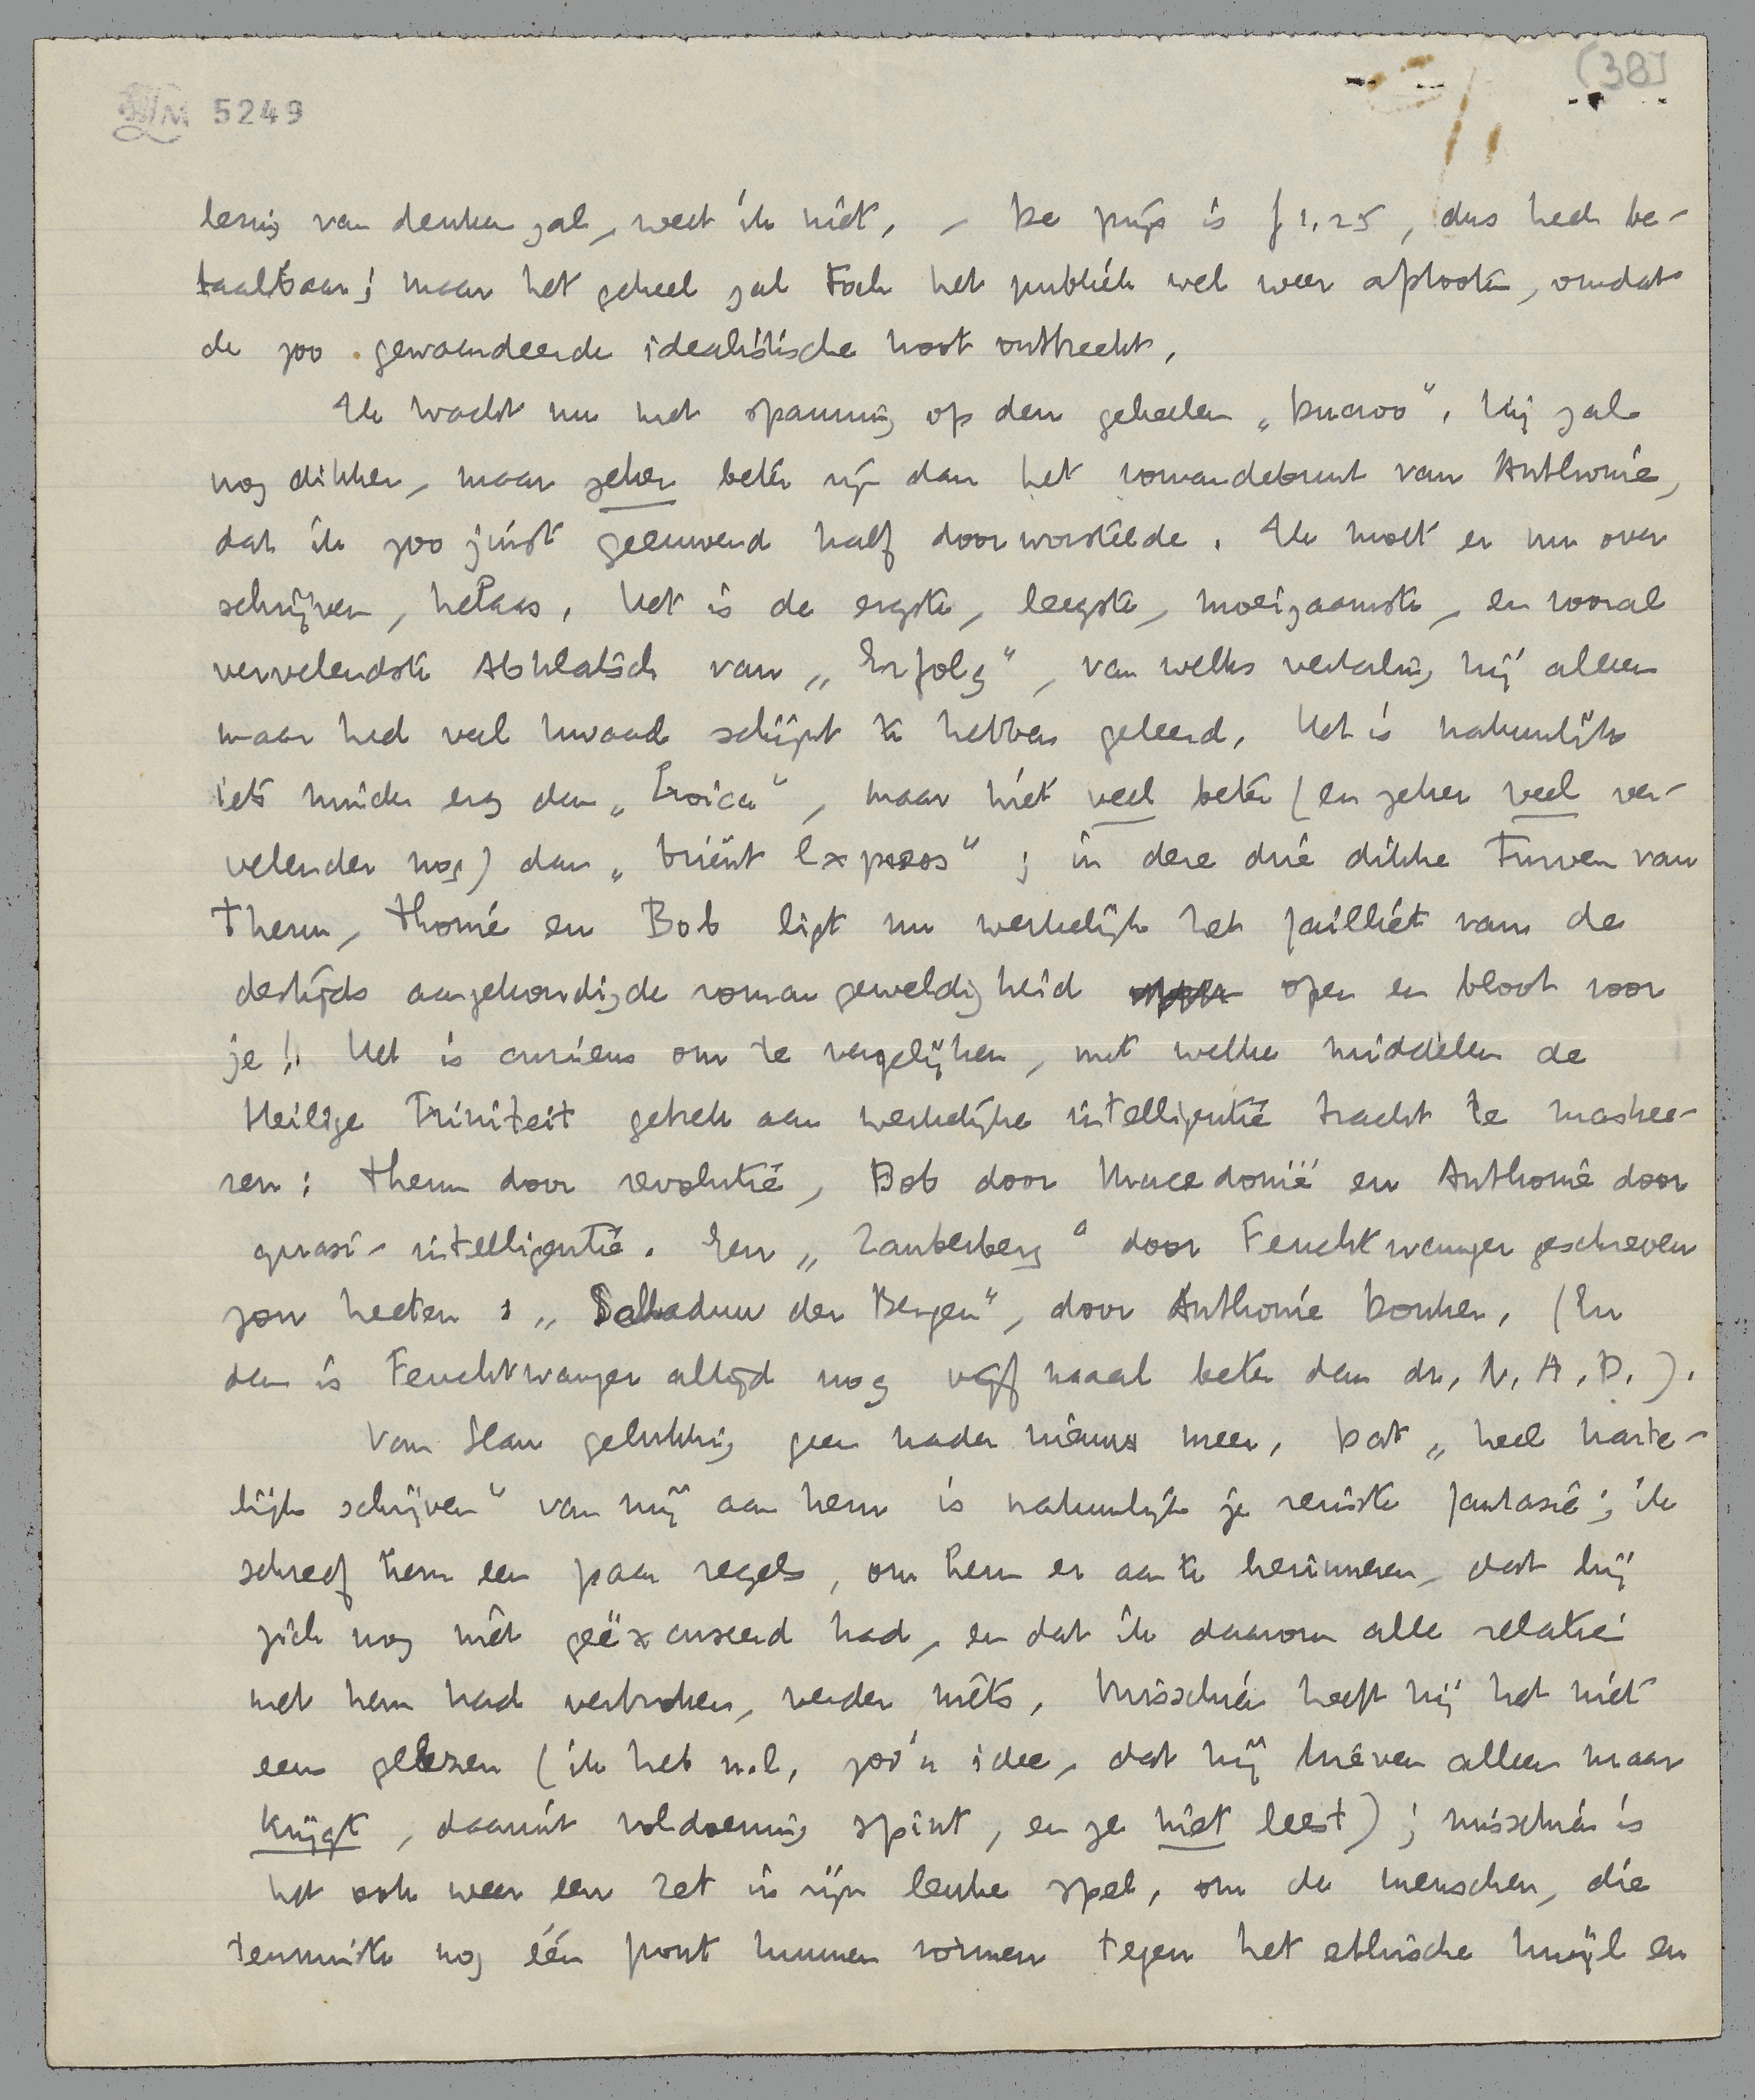 [38]
LM 5249
lenig van denken zal, weet ik niet. – De prijs is f 1,25, dus heel be-
taalbaar; maar het geheel zal toch het publiek wel weer afstooten, omdat
de zoo gewaardeerde idealistische noot ontbreekt.
Ik wacht nu met spanning op den geheelen „Ducroo". Hij zal
nog dikker, maar zeker beter zijn dan het romandebuut van Anthonie,
dat ik zoo juist geeuwend half doorworstelde. Ik moet er nu over
schrijven, helaas. Het is de ergste, leegste, moeizaamste, en vooral
vervelendste Abklatsch van „Erfolg", van welks vertaling hij alleen
maar heel veel kwaad schijnt te hebben geleerd. Het is natuurlijk
iets minder erg dan „Eroica", maar niet veel beter (en zeker veel ver-
velender nog) dan „Oriënt Express"; in deze drie dikke turven van
Theun, Thonie en Bob ligt nu werkelijk het failliet van de
destijds aangekondigde romangeweldigheid open en bloot voor
je!! Het is curieus om te vergelijken, met welke middelen de
Heilige Triniteit gebrek aan werkelijke intelligentie tracht te maskee-
ren: Theun door revolutie, Bob door Macedonië en Anthonie door
quasi-intelligentie. Een „Zauberberg" door Feuchtwanger geschreven
zou heeten: „Schaduw der Bergen", door Anthonie Donker. (En
dan is Feuchtwanger altijd nog vijf maal beter dan dr. N. A. D.).
Van Slau gelukkig geen nader nieuws meer. Dat „heel harte-
lijk schrijven" van mij aan hem is natuurlijk je reinste fantasie; ik
schreef hem een paar regels, om hem er aan te herinneren, dat hij
zich nog niet geëxcuseerd had, en dat ik daarom alle relatie
met hem had verbroken, verder niets. Misschien heeft hij het niet
eens gelezen (ik heb n.l. zoo'n idee, dat hij brieven alleen maar
krijgt, daaruit voldoening spint, en ze niet leest); misschien is
het ook weer een zet in zijn leuke spel, om de menschen, die
tenminste nog één front kunnen vormen tegen het ethische kwijl en